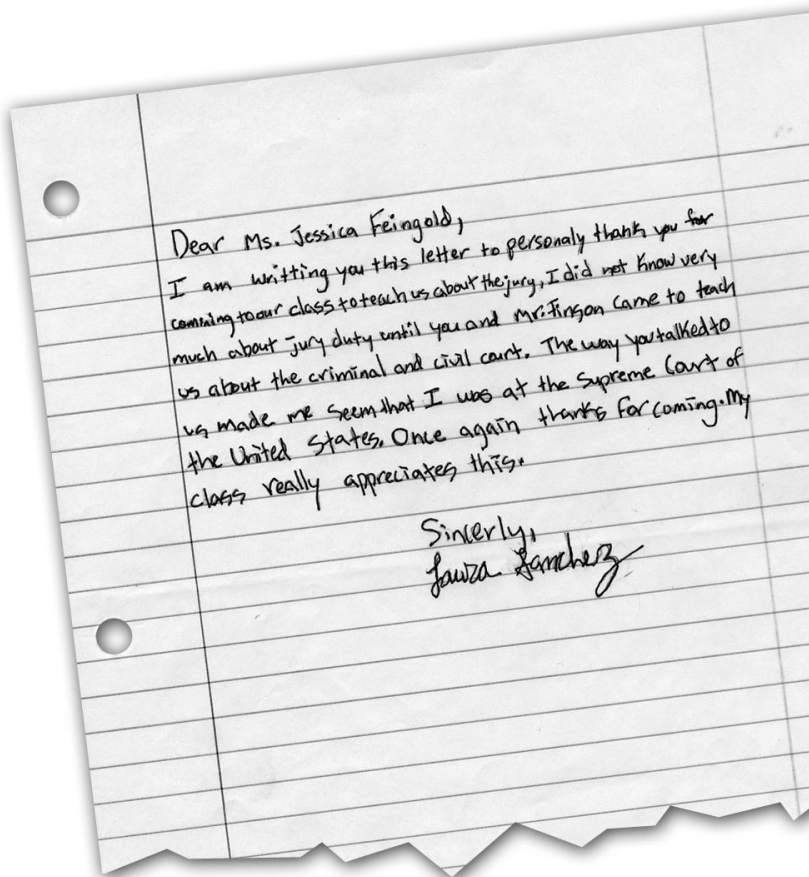 Dear Ms. Jessica Feingold,
I am writting you this letter to personaly thank you for
comining to our class to teach us about the jury, I did not know very
much about jury duty until you and Mr. Finson came to teach
us about the criminal and civil court. The way you talked to
us made me seem that I was at the Supreme Court of
the United States. Once again thanks for coming. My
class really appreciates this.
Sincerly,
Laura Sanchez